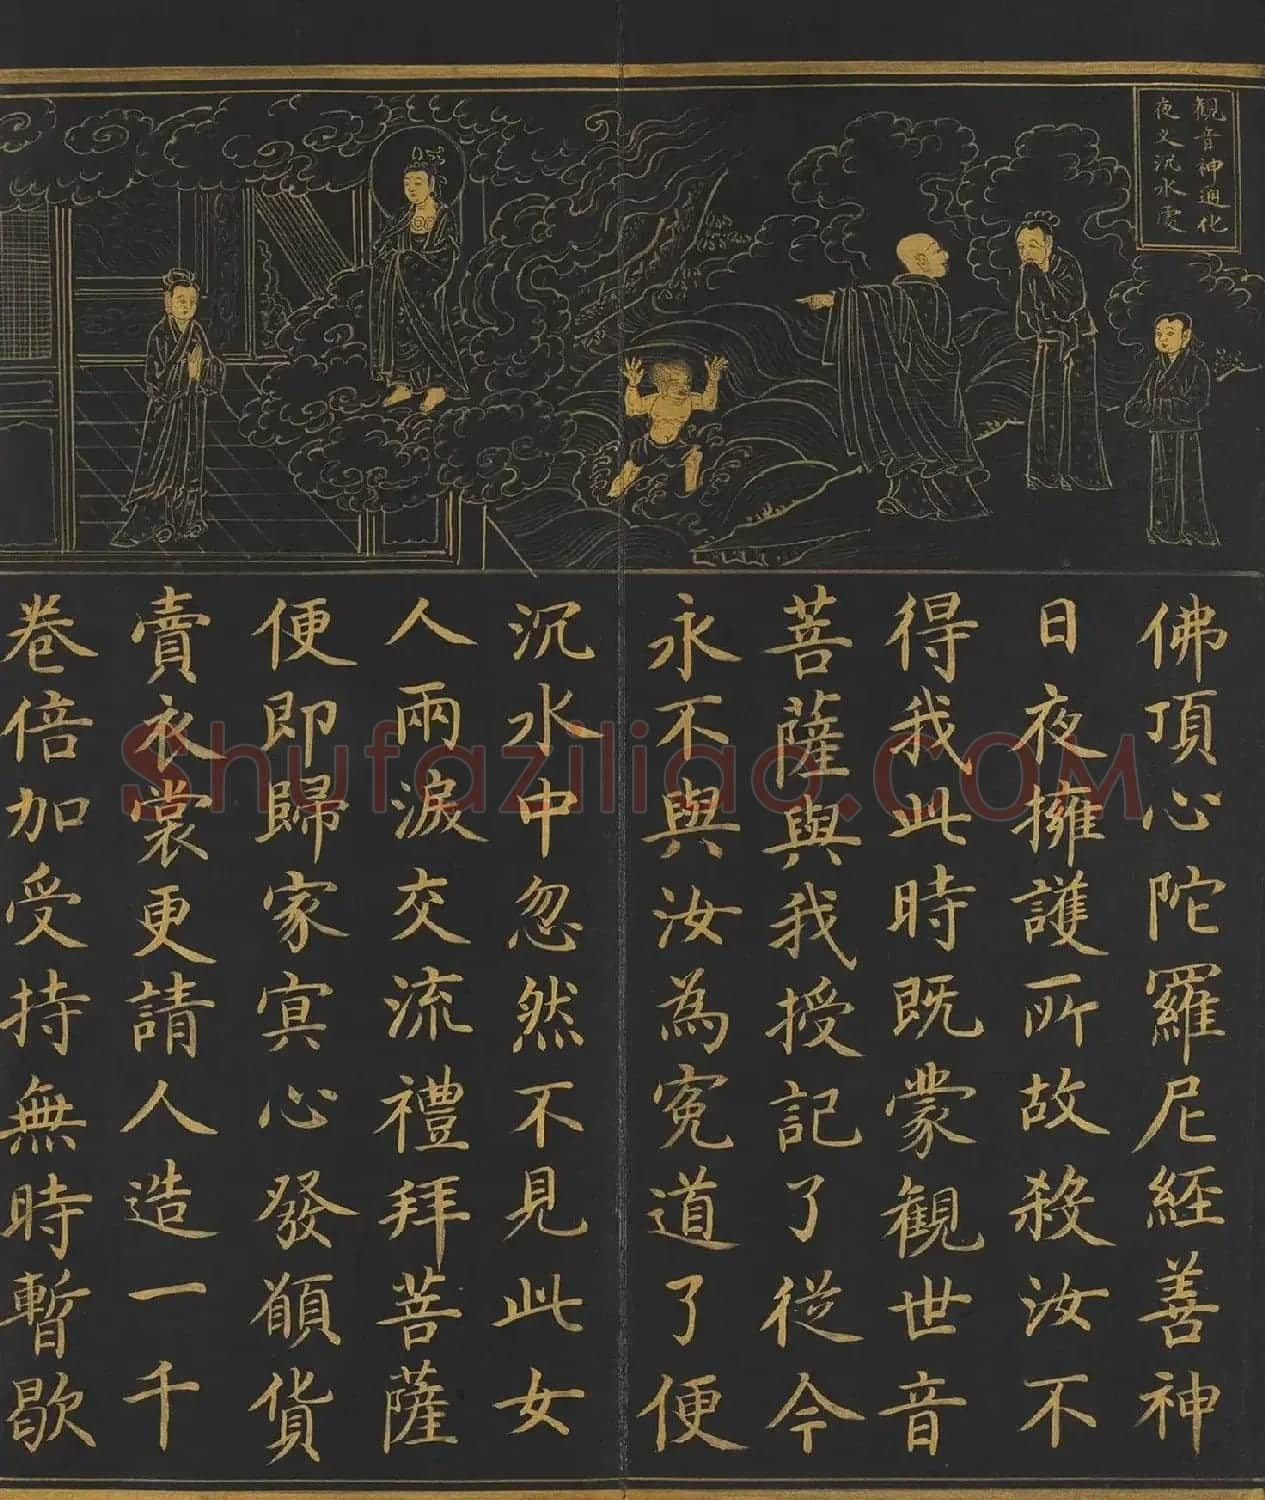 觀音神通化
夜叉沉水處
佛頂心陀羅尼經善神
日夜擁護所故殺汝不
得我此時既蒙觀世音
菩薩與我授記了從今
永不與汝為寃道了便
沉水中忽然不見此女
人兩淚交流禮拜菩薩
便即歸家㝠心發願貨
賣衣裳更請人造一千
卷倍加受持無時暫歇
Shufaziliao.COM